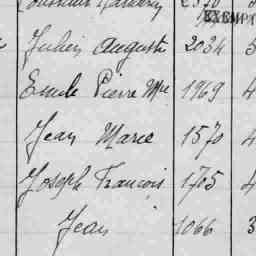 2570
EXEMPT
Julien Auguste 2034
Emile Pierre Mie 1969 4
Jean Marie 1570 4
Joseph François 1765 4
Jean 1066 3